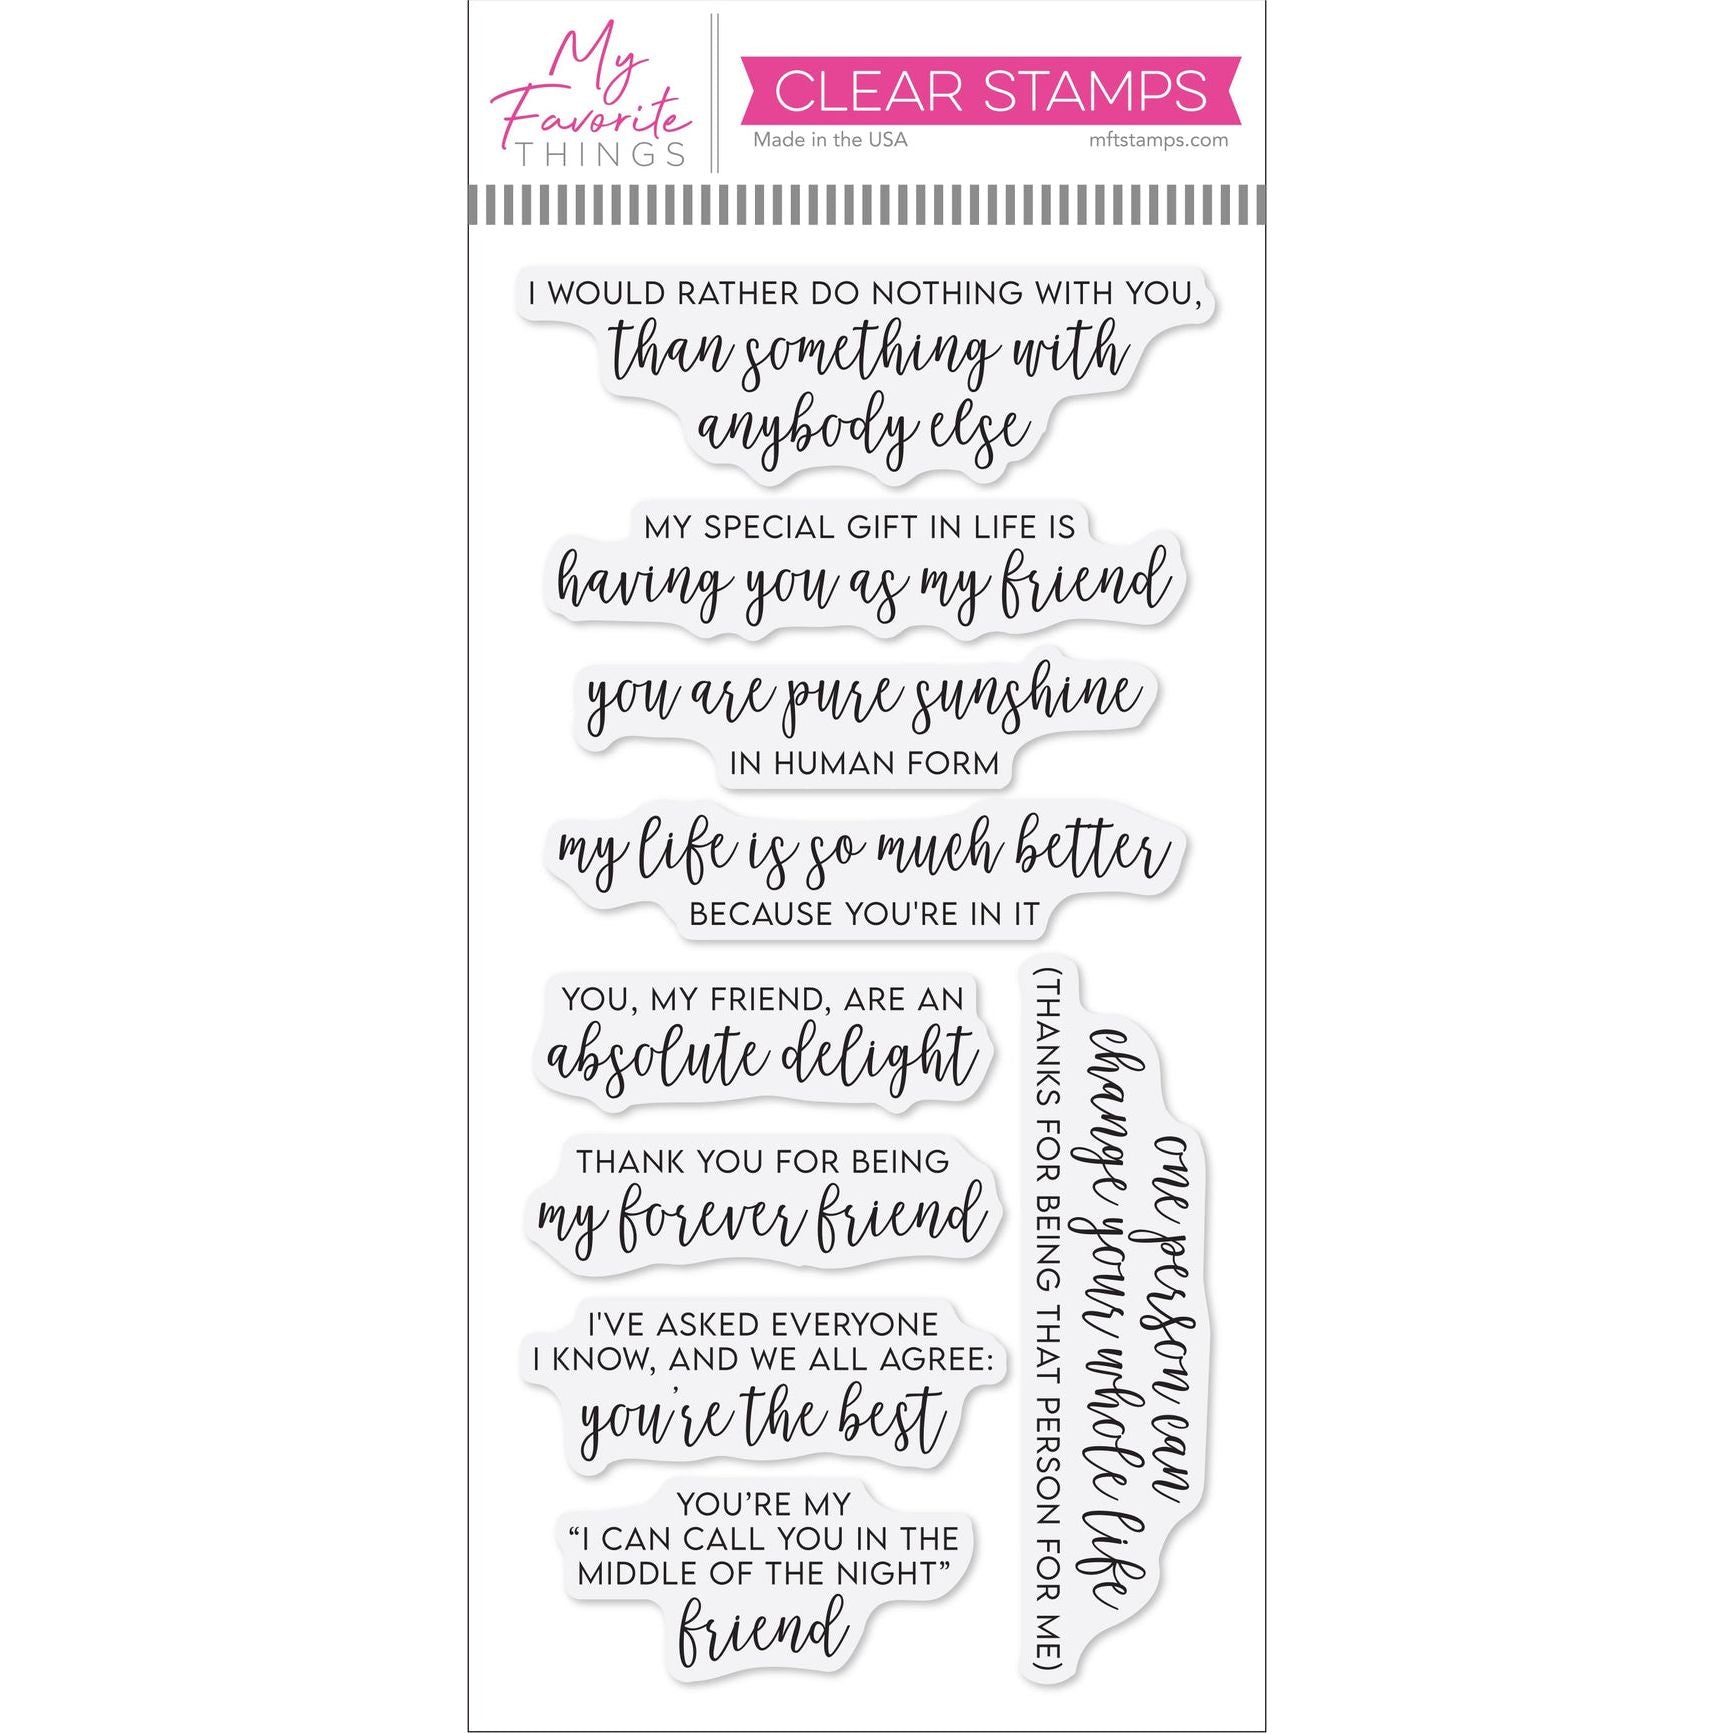 My
Favorite
THINGS
CLEAR STAMPS
Made in the USA
mftstamps.com
I WOULD RATHER DO NOTHING WITH YOU,
than something with
anybody else
MY SPECIAL GIFT IN LIFE IS
having you as my friend
you are pure sunshine
IN HUMAN FORM
my life is so much better
BECAUSE YOU'RE IN IT
YOU, MY FRIEND, ARE AN
absolute delight
THANK YOU FOR BEING
my forever friend
I'VE ASKED EVERYONE
I KNOW, AND WE ALL AGREE:
you're the best
YOU’RE MY
“I CAN CALL YOU IN THE
MIDDLE OF THE NIGHT”
friend
one person can
change your whole life
(THANKS FOR BEING THAT PERSON FOR ME)